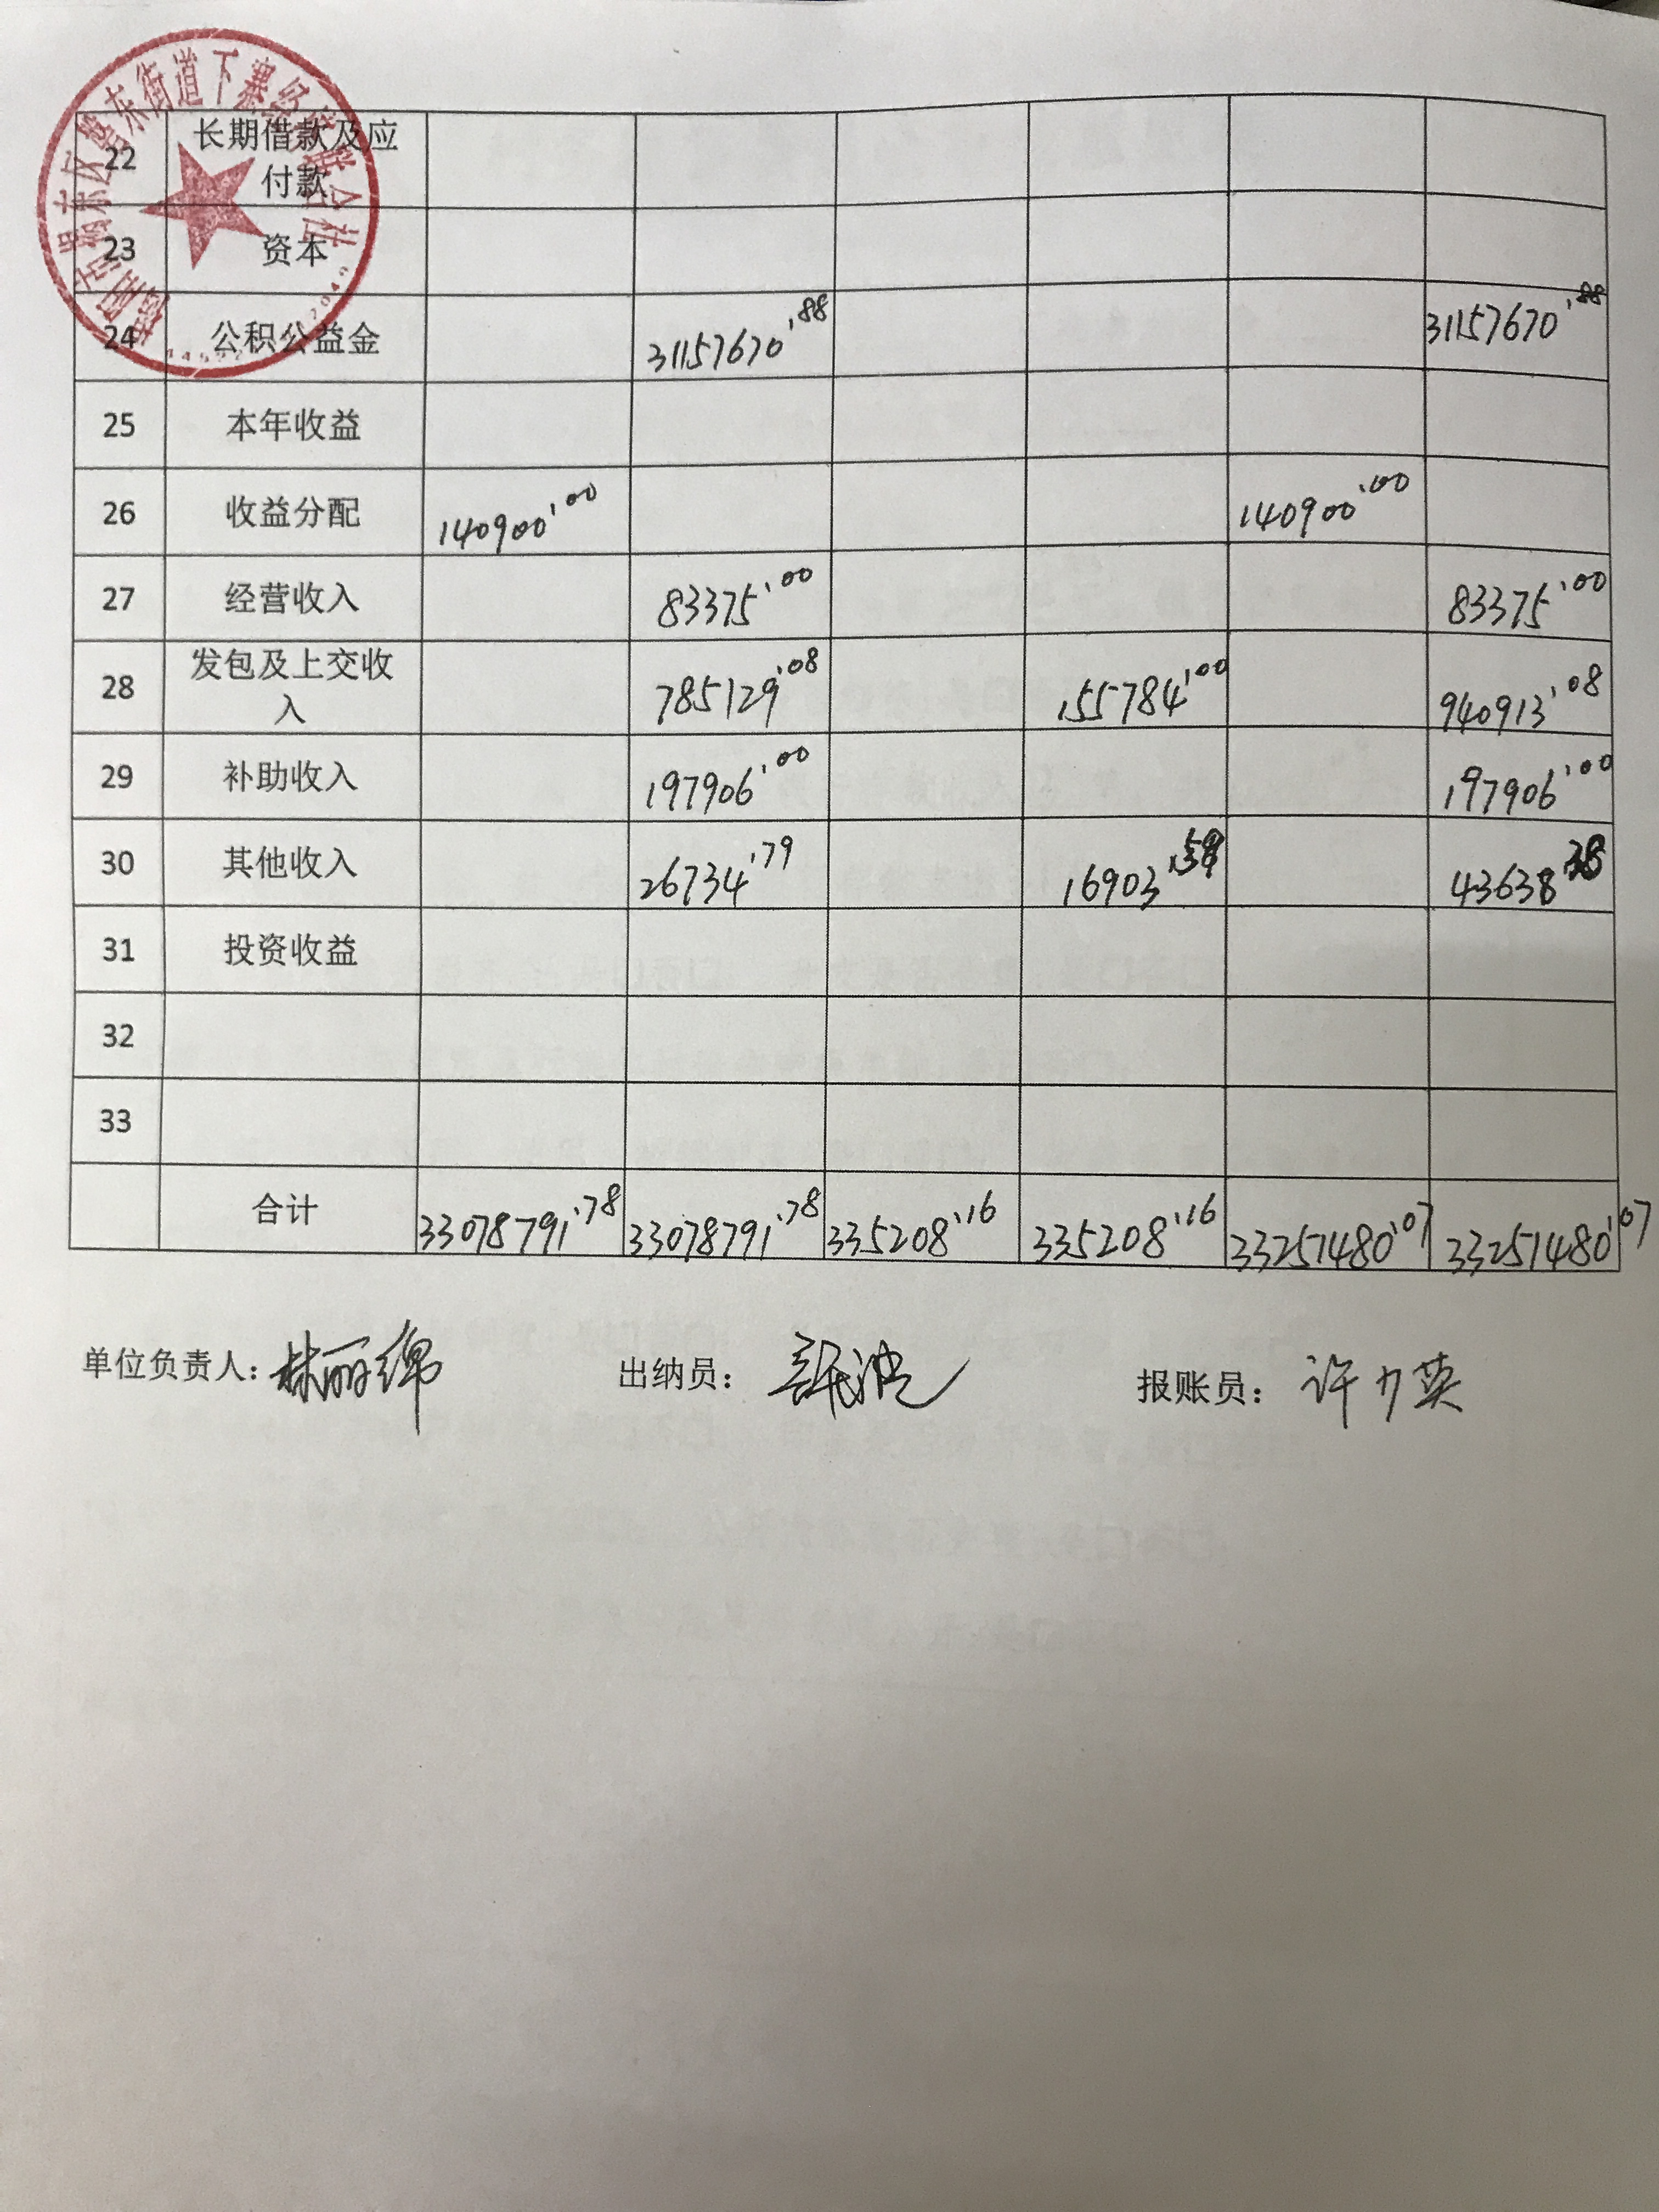 22 长期借款及应
付款
23 资本
24 公积公益金 31157670.88 31157670.88
25 本年收益
26 收益分配 140900.00 140900.00
27 经营收入 83375.00 83375.00
28 发包及上交收
入 785129.08 155784.00 940913.08
29 补助收入 197906.00 197906.00
30 其他收入 26734.79 16903.59 43638.38
31 投资收益
32
33
合计 33078791.78 33078791.78 335208.16 335208.16 33251480.07 33251480.07
单位负责人: 林丽绵 出纳员: 报账员: 许少英